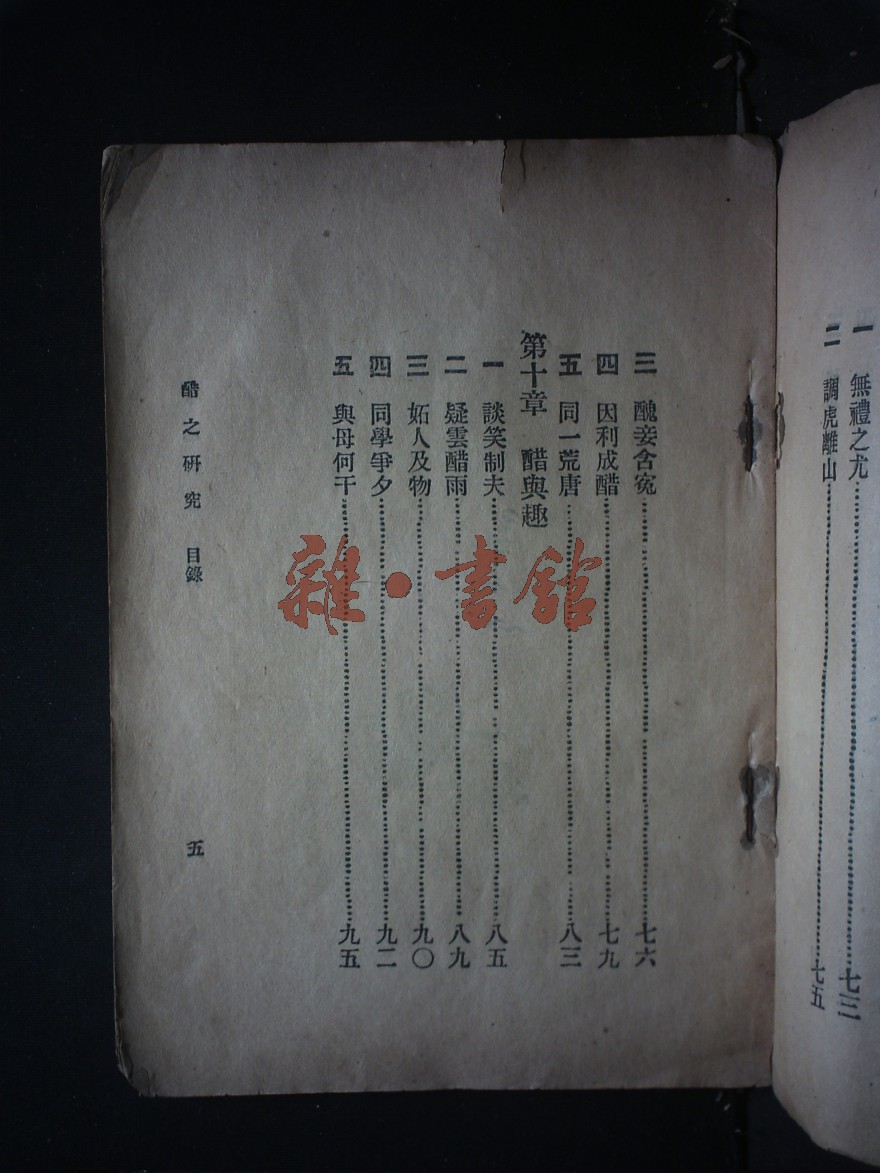 一　無禮之尤……七三
二　調虎離山……七五
三　醜妾含冤……七六
四　因利成醋……七九
五　同一荒唐……八三
第十章　醋與趣
一　談笑制夫……八五
二　疑雲醋雨……八九
三　妬人及物……九〇
四　同學爭夕……九二
五　與母何干……九五
醋之研究　目錄　五
雜·書館